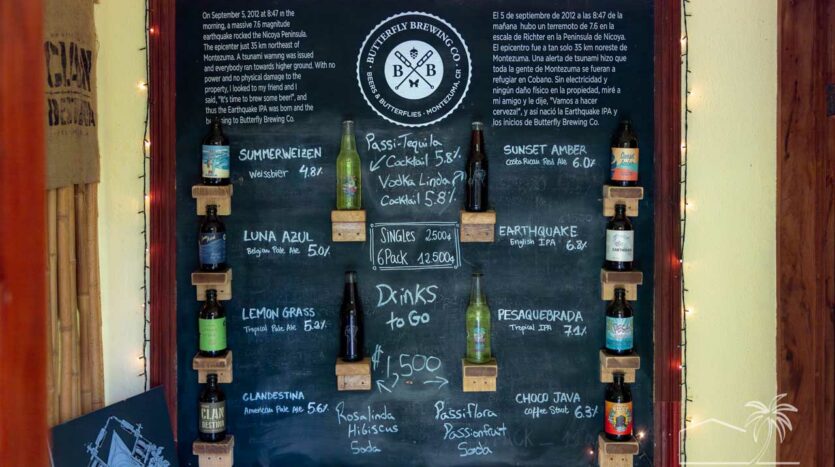 On September 5, 2012 at 8:47 in the
morning, a massive 7.6 magnitude
earthquake rocked the Nicoya Peninsula.
The epicenter just 35 km northeast of
Montezuma. A tsunami warning was issued
and everybody ran towards higher ground. With no
power and no physical damage to the
property, I looked to my friend and I
said, "It's time to brew some beer!", and
thus the Earthquake IPA was born and the
to Butterfly Brewing Co.
BUTTERFLY BREWING CO.
B B
BEERS & BUTTERFLIES · MONTEZUMA, CR
El 5 de septiembre de 2012 a las 8:47 de la
mañana hubo un terremoto de 7.6 en la
escala de Richter en la Península de Nicoya.
El epicentro fue a tan solo 35 km noreste de
Montezuma. Una alerta de tsunami hizo que
toda la gente de Montezuma se fueran a
refugiar en Cobano. Sin electricidad y
ningún daño físico en la propiedad, miré a
mi amigo y le dije, "Vamos a hacer
cerveza!", y así nació la Earthquake IPA y
los inicios de Butterfly Brewing Co.
CLAN
DESTINA
SUMMERWEIZEN
Weissbier 4.8%
LUNA AZUL
Belgian Pale Ale 5.0%
LEMON GRASS
Tropical Pale Ale 5.2%
CLANDESTINA
American Pale Ale 5.6%
CLAN
DESTINA
Passi-Tequila
Cocktail 5.8%
Vodka Linda
Cocktail 5.8%
SINGLES 2500
6 Pack 12500
Drinks
to Go
1,500
Rosalinda
Hibiscus
Soda
Passiflora
Passionfruit
Soda
SUNSET AMBER
Costa Rican Red Ale 6.0%
EARTHQUAKE
English IPA 6.8%
PESAQUEBRADA
Tropical IPA 7.1%
CHOCO JAVA
Coffee Stout 6.3%